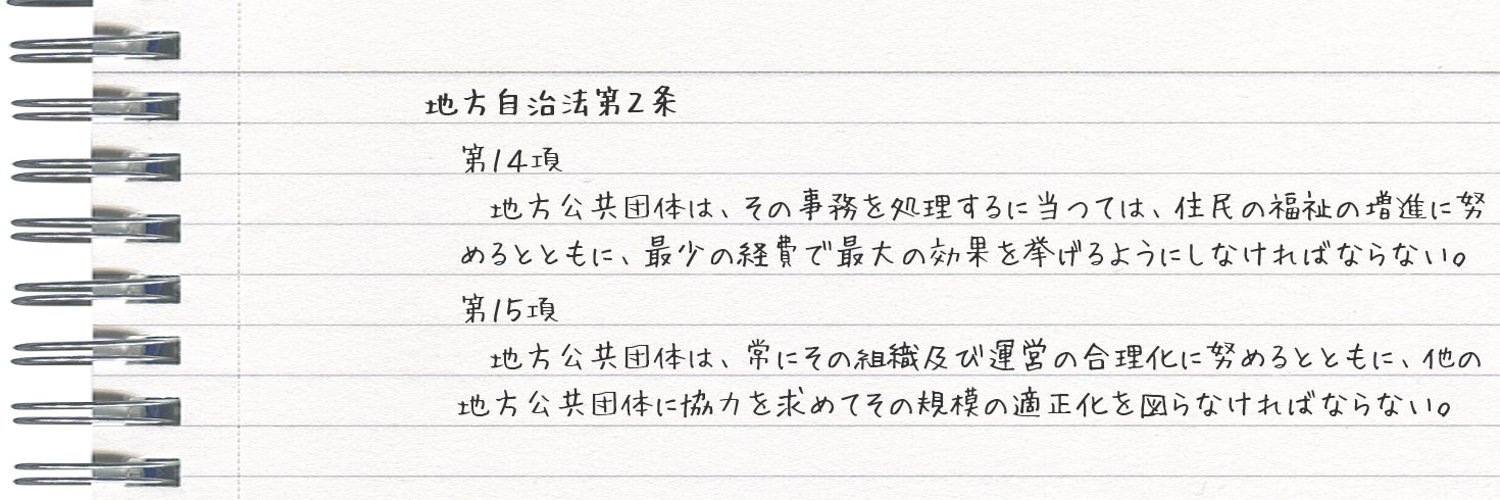 地方自治法第2条
第14項
地方公共団体は、その事務を処理するに当つては、住民の福祉の増進に努
めるとともに、最少の経費で最大の効果を挙げるようにしなければならない。
第15項
地方公共団体は、常にその組織及び運営の合理化に努めるとともに、他の
地方公共団体に協力を求めてその規模の適正化を図らなければならない。